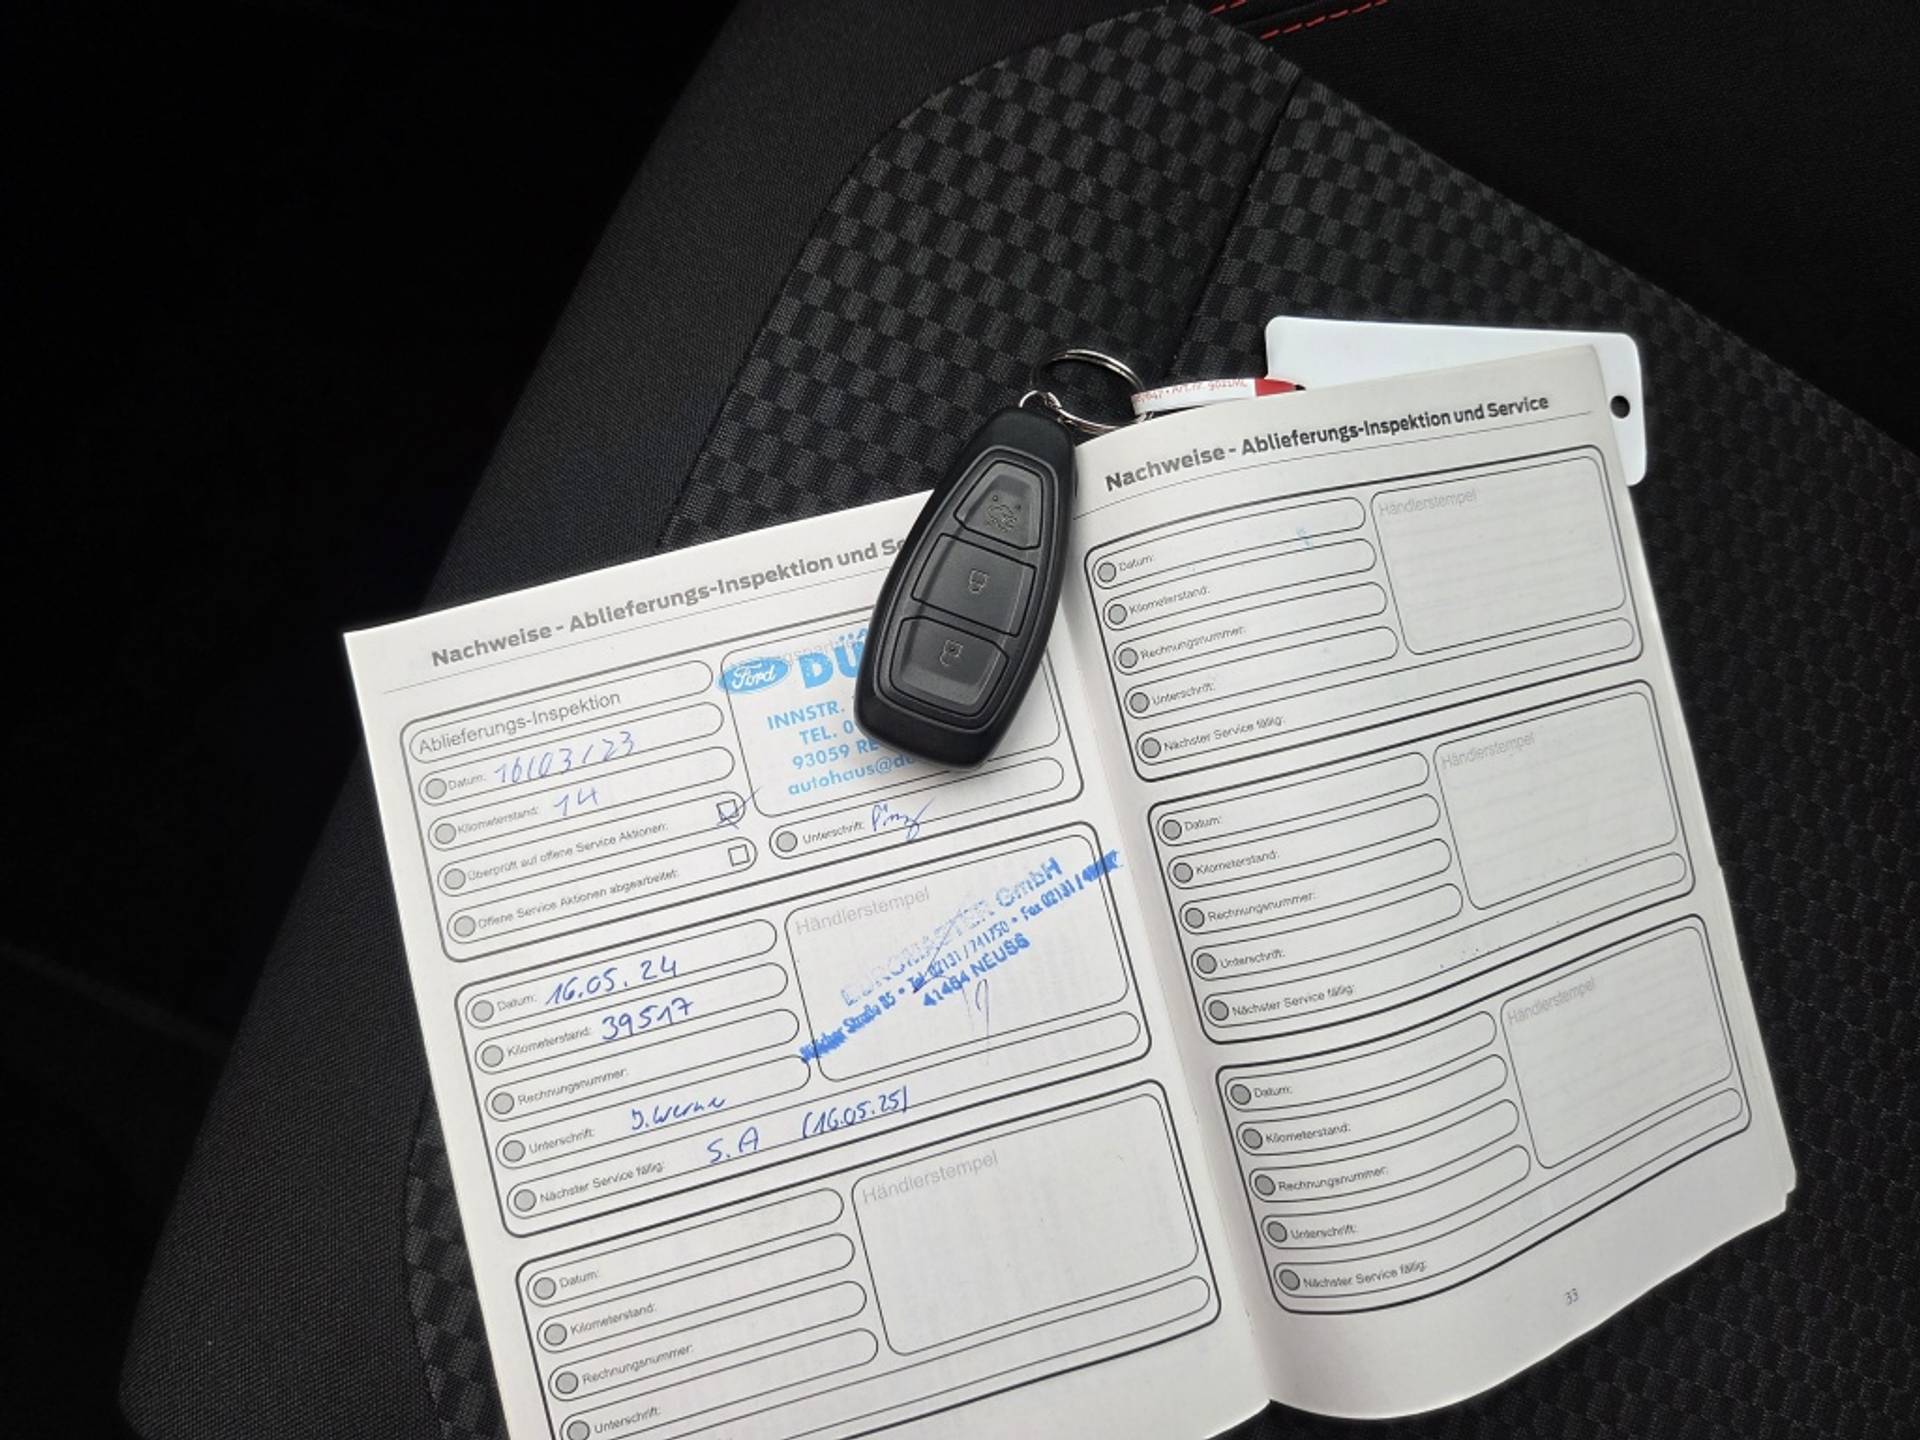 Nachweise - Ablieferungs-Inspektion und Se
Ablieferungs-Inspektion
Datum: 16/03/23
Kilometerstand: 14
Überprüft auf offene Service Aktionen:
Offene Service Aktionen abgearbeitet:
Ford DÜ
INNSTR.
TEL. 0
93059 RE
autohaus@d
Unterschrift:
Datum: 16.05.24
Kilometerstand: 39517
Rechnungsnummer:
Unterschrift: J. Werner
Nächster Service fällig: S.A (16.05.25)
Händlerstempel
EUROMASTER GmbH
Straße 85 • Tel 02131/741750 • Fax 02131/
41464 NEUSS
Datum:
Kilometerstand:
Rechnungsnummer:
Unterschrift:
Händlerstempel
Art.nr.
Nachweise - Ablieferungs-Inspektion und Service
Datum:
Kilometerstand:
Rechnungsnummer:
Unterschrift:
Nächster Service fällig:
Händlerstempel
Datum:
Kilometerstand:
Rechnungsnummer:
Unterschrift:
Nächster Service fällig:
Händlerstempel
Datum:
Kilometerstand:
Rechnungsnummer:
Unterschrift:
Nächster Service fällig:
Händlerstempel
33